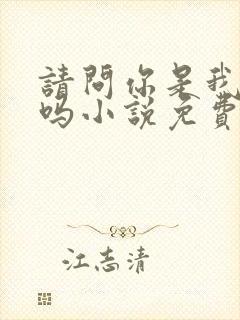 請問你是我
吗小說免費
江志清